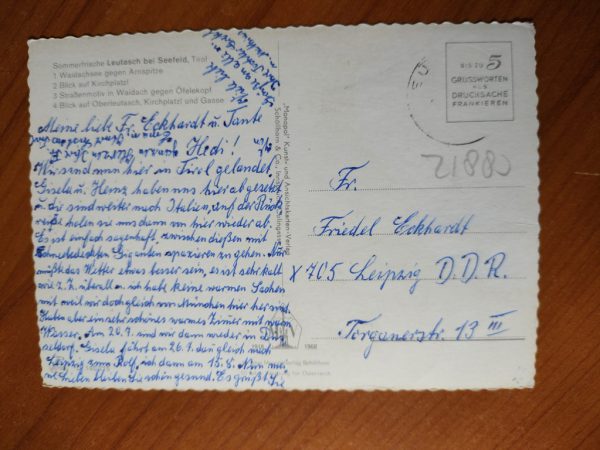 Sommerfrische Leutasch bei Seefeld, Tirol
1 Waidachsee gegen Arnspitze
2 Blick auf Kirchplatzl
3 Straßenmotiv in Waidach gegen Öfelekopf
4 Blick auf Oberleutasch, Kirchplatzl und Gasse
Meine liebe Fr. Eckhardt u. Tante
Hedi!
Wir sind nun hier in Tirol gelandet
Gisela u. Heinz haben uns hier abgesetzt
u. die sind weiter nach Italien, auf der Rück
reise holen sie uns dann von hier wieder ab.
Es ist einfach sagenhaft, zwischen diesen mit
Schneebedeckten Giganten spazieren zu gehen. Nur
müßte das Wetter etwas besser sein, es ist sehr kalt
wie z. Z. überall u. ich habe keine warmen Sachen
mit weil wir doch gleich von München hier her sind.
Haben aber ein sehr schönes warmes Zimmer mit warm
Wasser. Am 20. sind wir dann wieder in Düs
seldorf. Gisela fährt am 26. dan gleich nach
Leipzig zum Rolf, ich dann am 15. Nun mei
ne Lieben bleiben Sie schön gesund. Es grüßt Sie
"Monopol" Kunst- und Ansichtskarten-Verlag
Schöllhorn & Co., Innsbruck
BIS ZU 5
GRUSSWORTEN
ALS
DRUCKSACHE
FRANKIEREN
21880
Fr.
Friedel Eckhardt
x 705 Leipzig D.D.R.
Torgauerstr. 13 III
1968